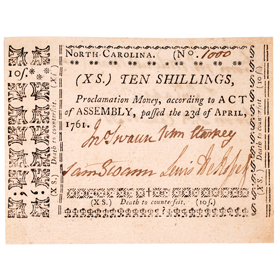 North-Carolina. (No. 1000
10s.
(X S.) TEN SHILLINGS,
Proclamation Money, according to ACT
of ASSEMBLY, passed the 23d of APRIL,
1761.
Jno Swann
Sam Swann Lewis
(X S.) Death to counterfeit. (10s.)
(X S.) Death to counterfeit. (10s.)